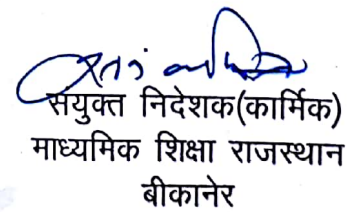 सयुक्त निदेशक(कार्मिक)
माध्यमिक शिक्षा राजस्थान
बीकानेर